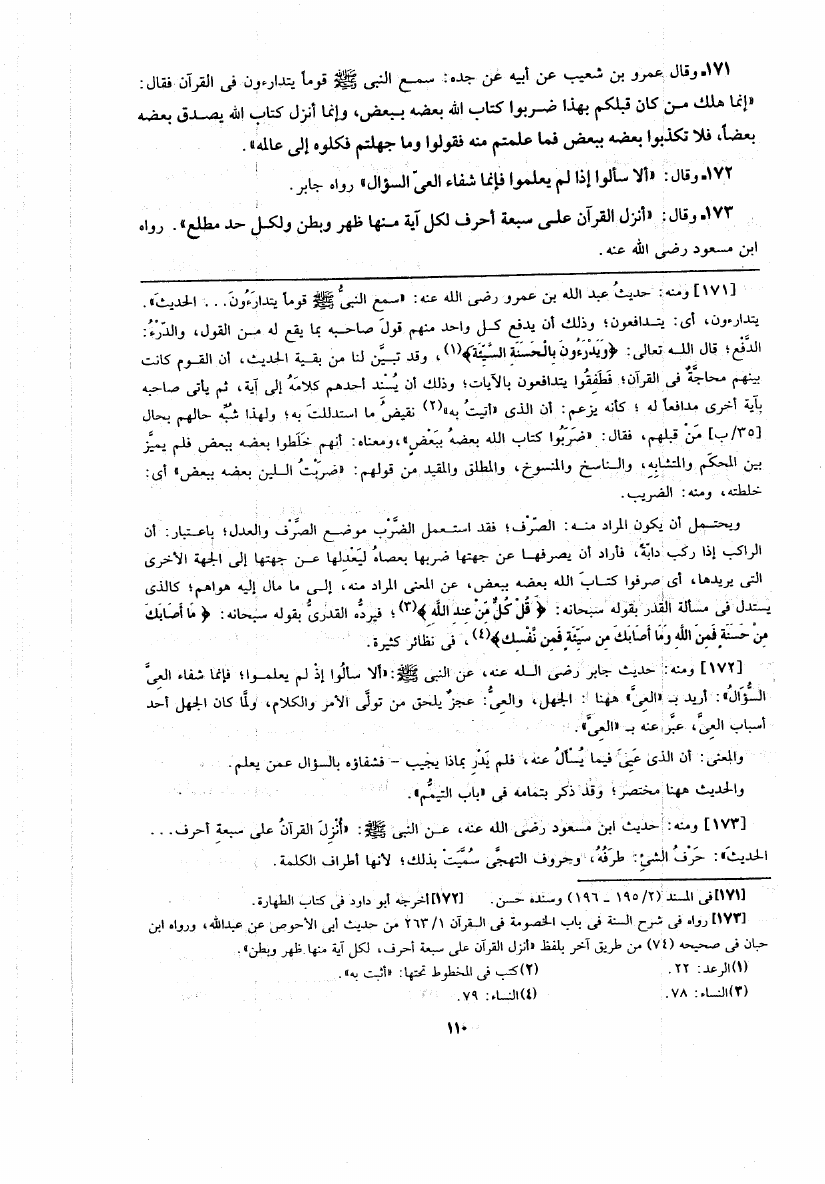 ١٧١ـ وقال عمرو بن شعيب عن أبيه عن جده: سمـع النبى ﷺ قوماً يتدارءون فى القرآن فقال:
«إنما هلك مـن كان قبلكم بهذا ضـربوا كتاب الله بعضه ببعض، وإنما أنزل كتاب الله يصـدق بعضه
بعضاً، فلا تكذبوا بعضه ببعض فما علمتم منه فقولوا وما جهلتم فكلوه إلى عالمه».
١٧٢ـ وقال: «ألا سألوا إذا لم يعلموا فإنما شفاء العىّ السؤال» رواه جابر.
١٧٣ـ وقال: «أنزل القرآن علـى سبعة أحرف لكل آية مـنها ظهر وبطن ولكـل حد مطلع». رواه
ابن مسعود رضى الله عنه.
[١٧١] ومنه: حديثُ عبد الله بن عمرو رضى الله عنه: «سمع النبىُّ ﷺ قوماً يتدارَءُونَ... الحديثَ».
يتدارءون، أى: يتـدافعون؛ وذلك أن يدفع كـل واحد منهم قولَ صاحبه بما يقع له مـن القول، والدَّرْءُ:
الدَّفْع؛ قال اللـه تعالى: ﴿وَيَدْرَءُونَ بِالْحَسَنَةِ السَّيِّئَةَ﴾(١)، وقد تبـيَّن لنا من بقـية الحديث، أن القـوم كانت
بينهم محاجَّةٌ فى القرآن؛ فَطَفِقُوا يتدافعون بالآيات؛ وذلك أن يُسْنِد أحدهم كلامَهُ إلى آية، ثم يأتى صاحبه
بآية أخرى مدافعاً له ؛ كأنه يزعم: أن الذى «أتيتُ به»(٢) نقيضُ ما استدللتَ به؛ ولهذا شبَّه حالهم بحال
[٣٥/ب] مَنْ قبلهم، فقال: «ضَرَبُوا كتاب الله بعضهُ ببَعْضٍ»،ومعناه: أنهم خلَطوا بعضه ببعض فلم يميِّز
بين المحكَم والمتشابِهِ، والـناسخ والمنسوخ، والمطلق والمقيد من قولهم: «ضربْتُ الـلبن بعضه ببعض» أى:
خلطته، ومنه: الضريب.
ويحتـمل أن يكون المراد منـه: الصّرْف؛ فقد استـعمل الضَّرْب موضـع الصَّرْف والعدل؛ باعتبار: أن
الراكب إذا ركب دابَّةً، فأراد أن يصرفهـا عن جهتها ضربها بعصاهُ ليَعْدِلها عـن جهتها إلى الجهة الأخرى
التى يريدها، أى صرفوا كتـابَ الله بعضه ببعض، عن المعنى المراد منه، إلـى ما مال إليه هواهم؛ كالذى
يستدل فى مسألة القَدَر بقوله سبحانه: ﴿ قُلْ كُلٌّ مِّنْ عِندِ اللَّهِ ﴾(٣)؛ فيردُّه القدرىُّ بقوله سبحانه: ﴿ مَا أَصَابَكَ
مِنْ حَسَنَةٍ فَمِنَ اللَّهِ وَمَا أَصَابَكَ مِن سَيِّئَةٍ فَمِن نَّفْسِكَ﴾(٤)، فى نظائر كثيرة.
[١٧٢] ومنه: حديث جابر رضى الـله عنه، عن النبى ﷺ: «ألا سألُوا إذْ لم يعلمـوا؛ فإنما شفاء العِىِّ
السُّؤَالُ»: أريد بـ «العِىِّ» ههنا : الجهل، والعىُّ: عجزٌ يلحق من تولَّى الأمر والكلام، ولَّما كان الجهل أحد
أسباب العِىِّ، عبَّر عنه بـ «العِىِّ».
والمعنى: أن الذى عَيِىَ فيما يُسْأَلُ عنه، فلم يَدْرِ بماذا يجيب – فشفاؤه بالسؤال عمن يعلم.
والحديث ههنا مختصر؛ وقد ذكر بتمامه فى «باب التيمُّم».
[١٧٣] ومنه: حديث ابن مسعود رضى الله عنه، عـن النبى ﷺ: «أُنْزِلَ القرآنُ على سبعةِ أحرف...
الحديثَ»: حَرْفُ الشئِ: طرَفُهُ، وحروف التهجِّى سُمِّيَتْ بذلك؛ لأنها أطراف الكلمة.
[١٧١]فى المسند (١٩٥/٢ ـ ١٩٦) وسنده حسن. [١٧٢]أخرجه أبو داود فى كتاب الطهارة.
[١٧٣] رواه فى شرح السنة فى باب الخصومة فى القرآن ٢٦٣/١ من حديث أبى الأحوص عن عبدالله، ورواه ابن
حبان فى صحيحه (٧٤) من طريق آخر بلفظ «أنزل القرآن على سبعة أحرف، لكل آية منها ظهر وبطن».
(١)الرعد: ٢٢. (٢)كتب فى المخطوط تحتها: «أثبت به».
(٣)النساء: ٧٨. (٤)النساء: ٧٩.
١١٠